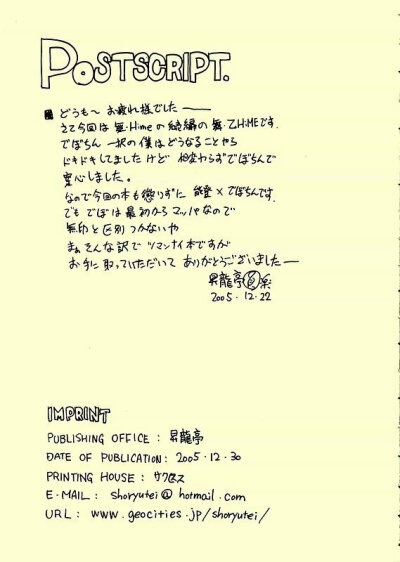 POSTSCRIPT.
どうも～ お疲れ様でした――
さて今回は 舞-Himeの続編の 舞-乙HiMEです.
でぼちん 一択の僕はどうなることやら
ドキドキしてましたけど 相変わらずでぼちんで
安心しました。
なので今回の本も懲りずに 能登×でぼちんです.
でも でぼは最初からマッパなので
無印と区別つかないや
まぁそんな訳で ツマンナイ本ですが
お手に取っていただいて ありがとうございました――
昇龍亭
2005.12.22
IMPRINT
PUBLISHING OFFICE : 昇龍亭
DATE OF PUBLICATION: 2005.12.30
PRINTING HOUSE : サクセス
E-MAIL : shoryutei@hotmail.com
URL : www.geocities.jp/shoryutei/